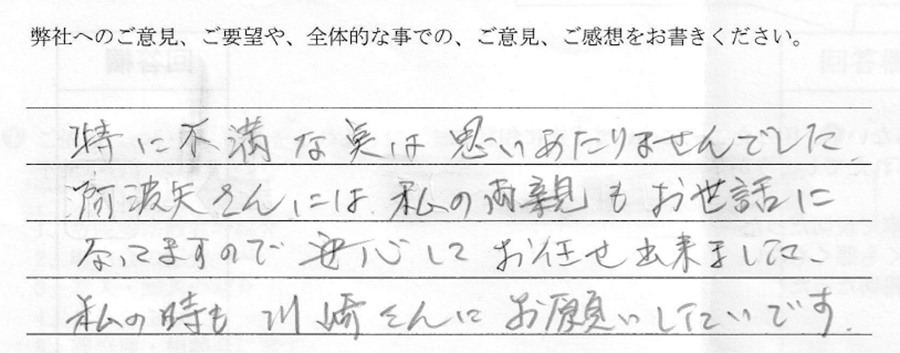 弊社へのご意見、ご要望や、全体的な事での、ご意見、ご感想をお書きください。
特に不満な点は思いあたりませんでした
阿波矢さんには、私の両親もお世話に
なってますので安心してお任せ出来ました
私の時も川崎さんにお願いしたいです.